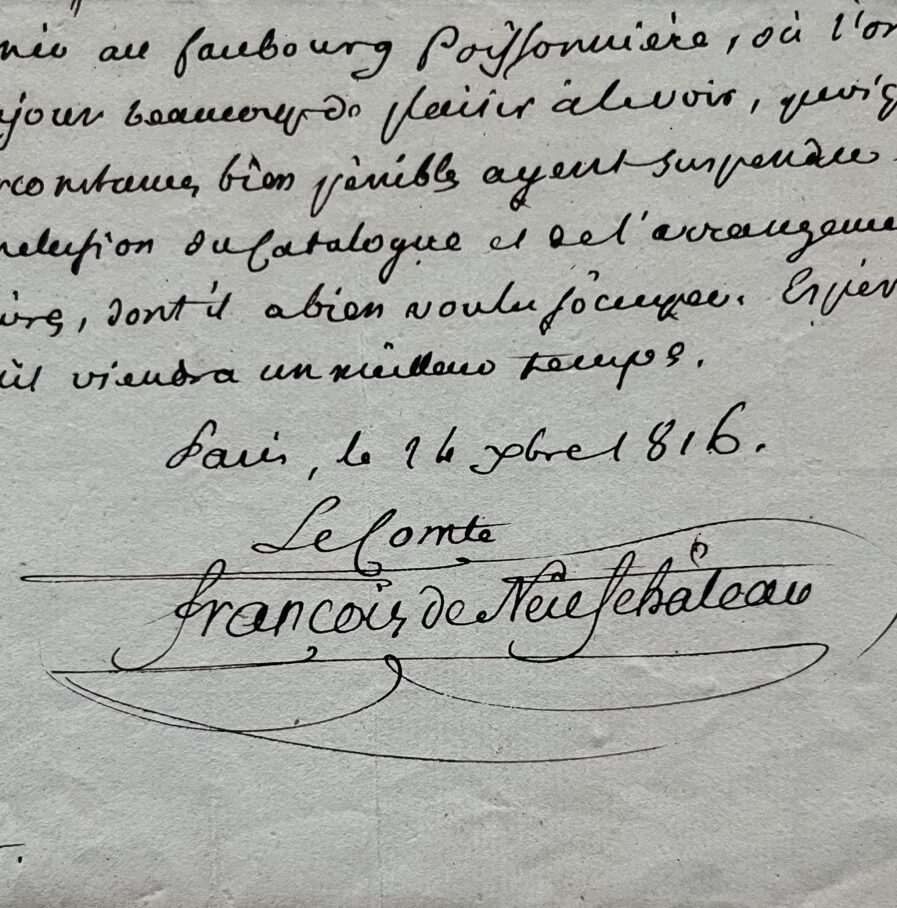 au faubourg Poissonnière, où l'on
jour beaucoup de plaisir à le voir, quoiq
constances bien pénibles ayent suspendu
clusion du Catalogue et de l'arrangeme
dont il a bien voulu s'ôccuper. Espér
il viendra un meilleur temps.
Paris, le 14 xbre 1816.
Le Comte
françois de Neufchâteau